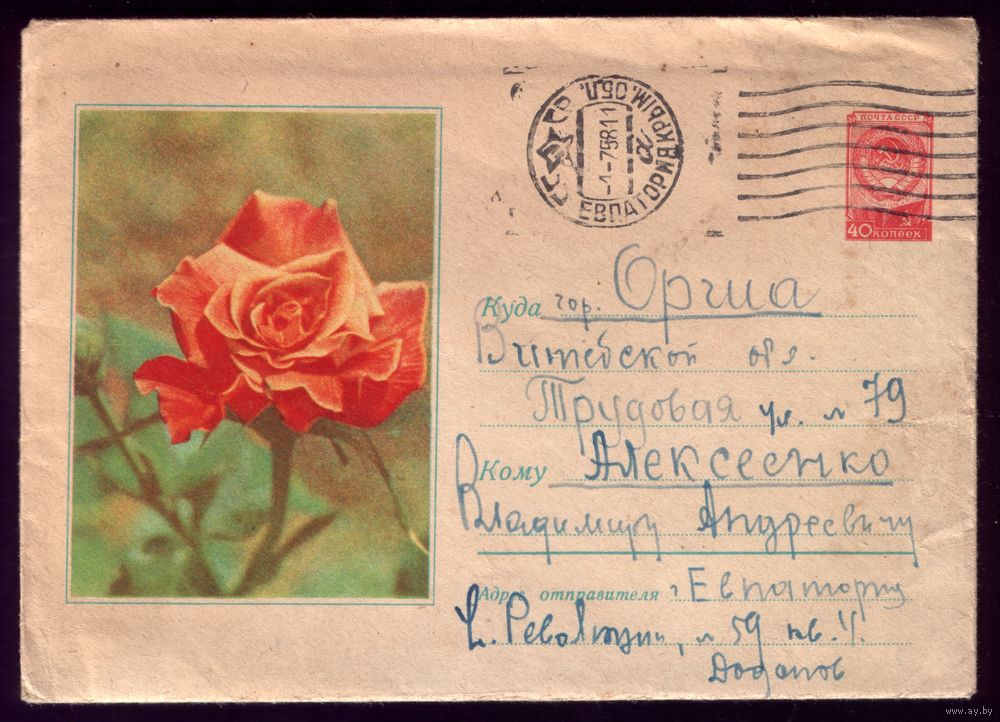 ПОЧТА СССР
40 КОПЕЕК
ЕВПАТОРИЯ КРЫМ. ОБЛ.
СССР
-1-7 58 11
Куда гор. Орша
Витебской обл.
Трудовая ул. № 79
Кому Алексеенко
Владимиру Андреевичу
Адрес отправителя г Евпатория
ул. Революции, № 59 кв. 4.
www.ay.by